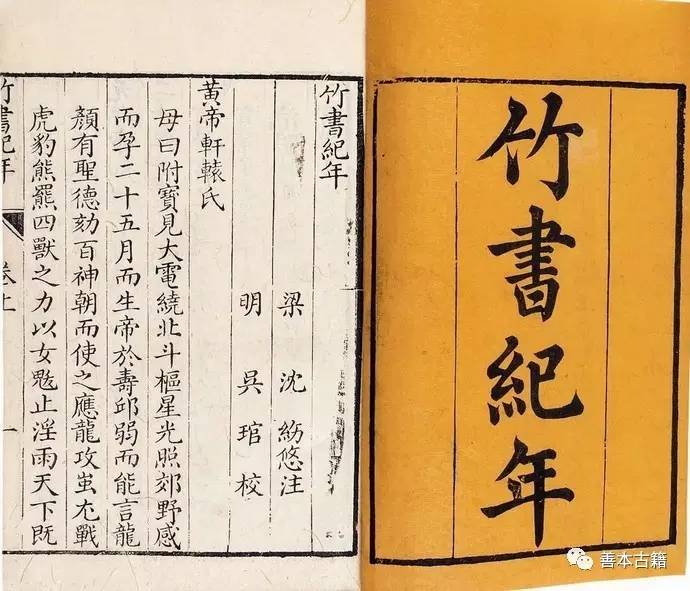 竹書紀年
竹書紀年
梁 沈 約悠注
明 吳 琯 校
黃帝軒轅氏
母曰附寶見大電繞北斗樞星光照郊野感
而孕二十五月而生帝於壽邱弱而能言龍
顏有聖德劾百神朝而使之應龍攻蚩尤戰
虎豹熊羆四獸之力以女魃止淫雨天下既
竹書紀年 卷上 一
善本古籍